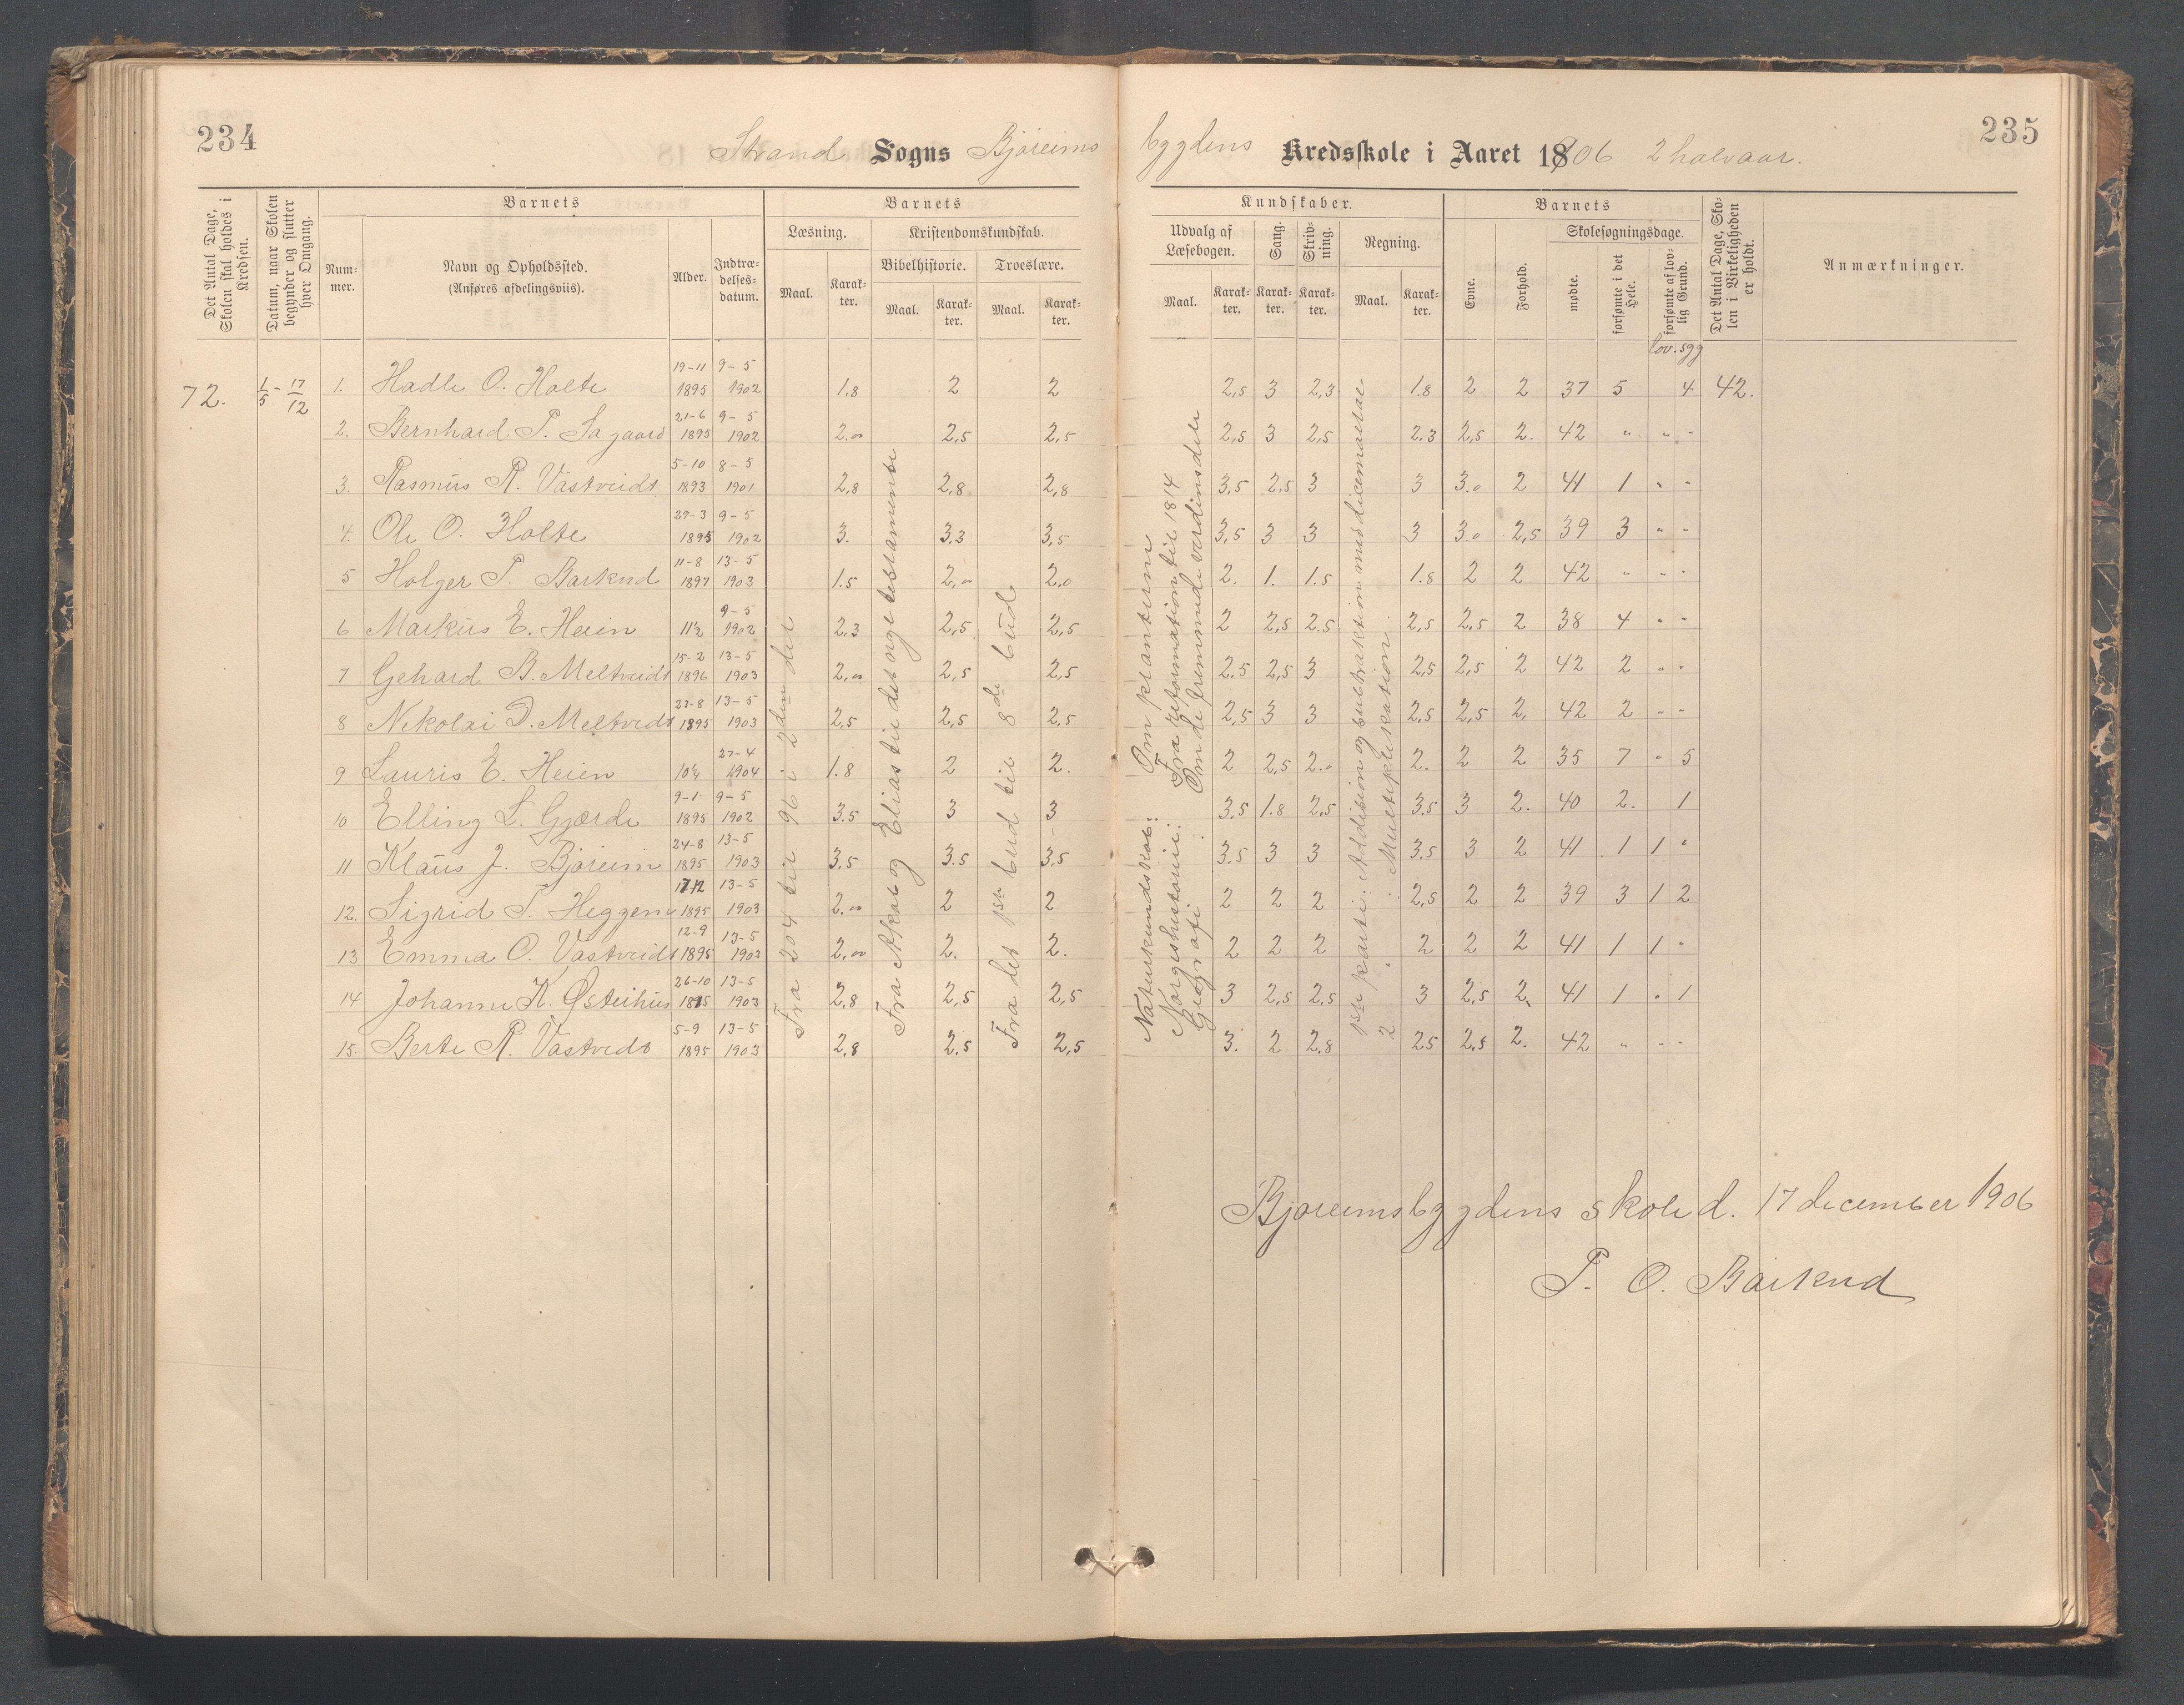 234
Strand Sogns Bjøreims
bygdens Kredsskole i Aaret 1806 2 halvaar.
235
Det Antal Dage, Skolen skal holdes i Kredsen.
Datum, naar Skolen begynder og slutter hver Omgang.
Barnets
Num-mer.
Navn og Opholdssted.
(Anføres afdelingsviis).
Alder.
Indtræ-delses-datum.
Barnets
Læsning.
Kristendomskundskab.
Bibelhistorie.
Troeslære.
Maal. Karak-ter. Maal. Karak-ter. Maal. Karak-ter.
Kundskaber.
Udvalg af Læsebogen.
Sang.
Skriv-ning.
Regning.
Maal. Karak-ter. Karak-ter. Karak-ter. Maal. Karak-ter.
Barnets
Evne.
Forhold.
Skolesøgningsdage.
mødte.
forsømte i det Hele.
forsømte af lov-lig Grund.
Det Antal Dage, Sko-len i Virkeligheden er holdt.
Anmærkninger.
lov. syg
72. 1/5 - 17/12
1. Hadle O. Holte 19-11 1895 9-5 1902 1.8 2 2 2,5 3 2,3 1.8 2 2 37 5 4 42.
2. Bernhard P. Sagaard 21-6 1895 9-5 1902 2.00 2,5 2,5 2,5 3 2,5 2.3 2,5 2. 42 " " -
3. Rasmus R. Vastveidt 5-10 1893 8-5 1901 2,8 2,8 2,8 3,5 2,5 3 3 3.0 2 41 1 " -
4. Ole O. Holte 27-3 1895 9-5 1902 3. 3.3 3,5 3,5 3 3 3 3.0 2,5 39 3 " -
5 Holger P. Barkned 11-8 1897 13-5 1903 1.5 2,00 2.0 2. 1. 1.5 1.8 2 2 42 " " -
6 Markus E. Heien 11½ 9-5 1902 2,3 2,5 2,5 2 2,5 2.5 2,5 2,5 2 38 4 " -
7 Gehard B. Meltveidt 15-2 1896 13-5 1903 2,00 2,5 2,5 2,5 2,5 3 2,5 2,5 2 42 2 " "
8 Nikolai D. Meltvedt 23-8 1895 13-5 1903 2,5 2,5 2,5 2,5 3 3 2,5 2,5 2, 42 2 - -
9 Lauris E. Heien 10¼ 27-4 1904 1.8 2 2. 2 2,5 2.0 2. 2 2 35 7 " 5
10 Elling L. Gjærde 9-1 1895 9-5 1902 3.5 3 3 3.5 1.8 2,5 3.5 3 2. 40 2. 1
11 Klaus J. Bjøreim 24-8 1895 13-5 1903 3,5 3.5 3,5 3.5 3 3 3.5 3 2 41 1 1 "
12. Sigrid T. Heggem 17-12 1895 13-5 1903 2.00 2 2 2 2 2 2,5 2 2 39 3 1 2
13 Emma O. Vastveidt 12-9 1895 13-5 1903 2,00 2. 2. 2 2 2 2 2 2 41 1 1 "
14 Johanne K. Østeihus 26-10 1895 13-5 1903 2,8 2,5 2,5 3 2,5 2,5 3 2,5 2, 41 1 " 1
15. Berte R. Vastvedt 5-9 1895 13-5 1903 2,8 2.5 2,5 3. 2 2,8 25 2,5 2. 42 " - -
Fra 204 til 96 i 2den del
Fra Akab og Elias til det nye testamente
Fra det 1ste bud til 8de bud
Naturkundskab: Om planterne
Norgeshistorie: Fra reformation til 1814
Geografi: Om de fremmede verdensdele
1ste parti: Addition og subtraktion med dicemaltal
2 " : Multiplikation.
Bjøreimsbygdens skole d. 17 december 1906
P. O. Barkned